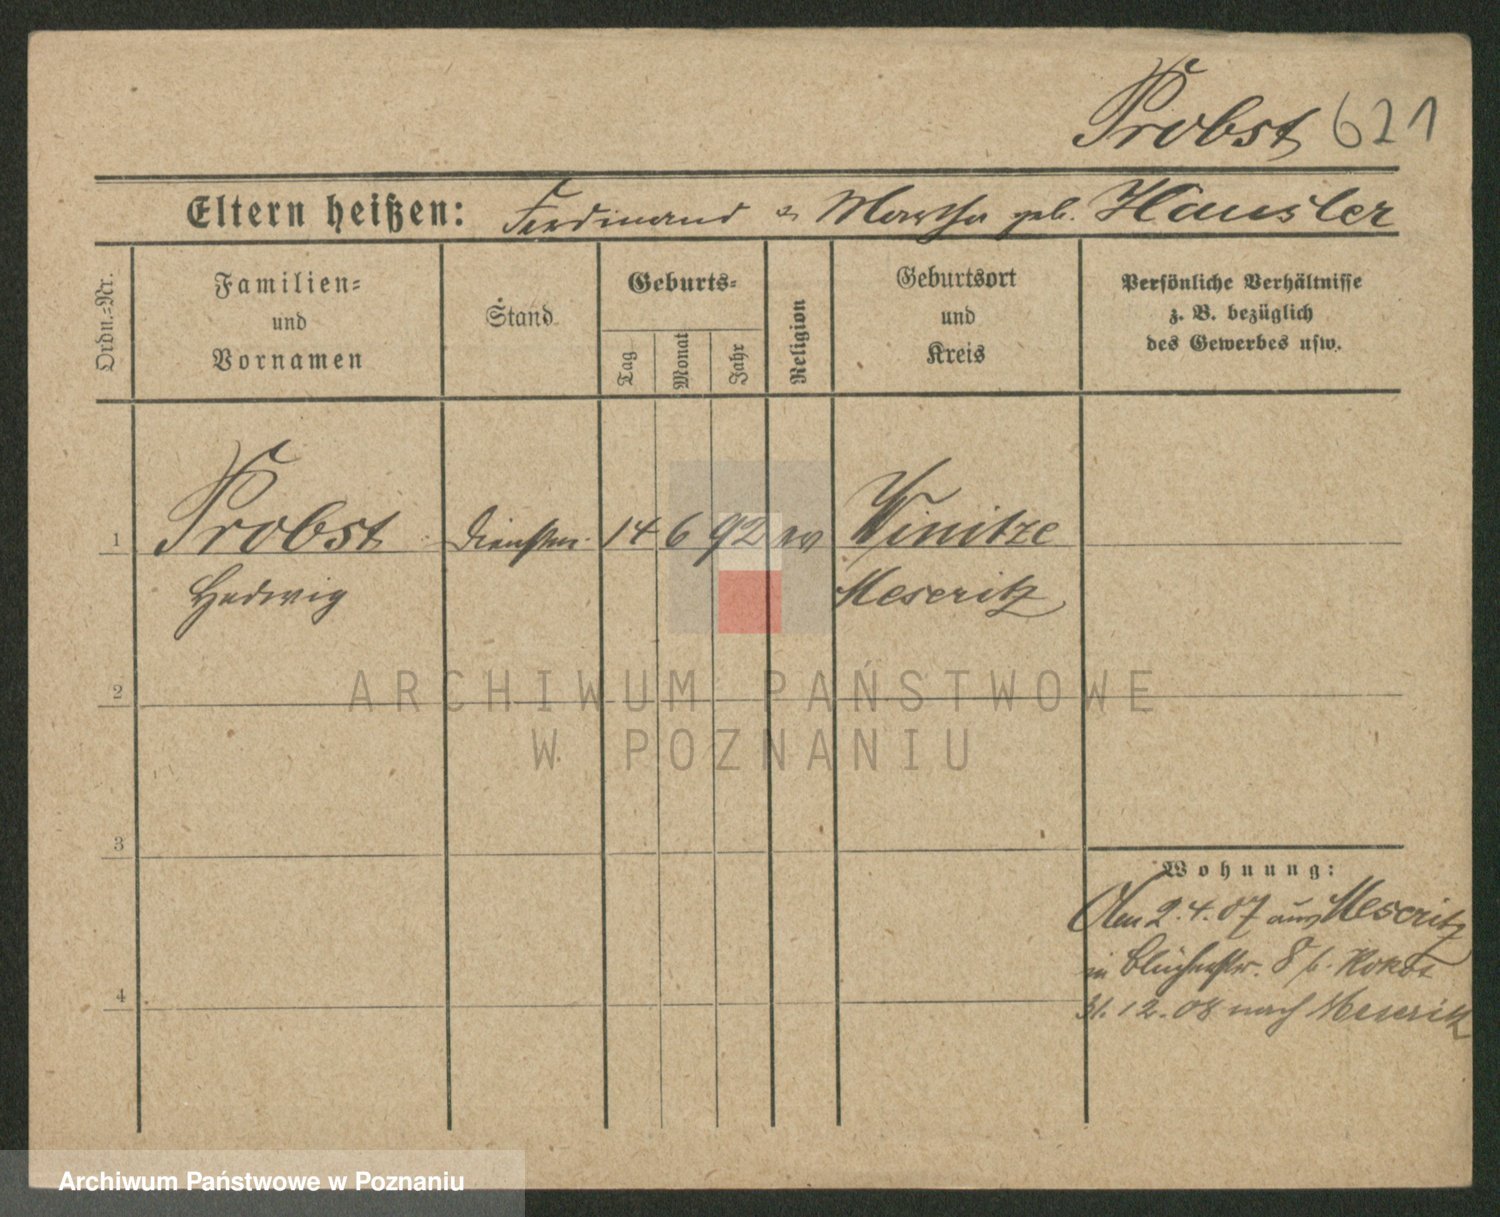 Probst 621
Eltern heißen: Ferdinand u Martha geb. Hausler
Ordn.-Nr.
Familien- und Vornamen
Stand
Geburts-
Tag
Monat
Jahr
Religion
Geburtsort und Kreis
Persönliche Verhältnisse
z. B. bezüglich
des Gewerbes usw.
1 Probst Dienstm. 14 6 92 ev Winitze
Hedwig Meseritz
2
3
4
Wohnung:
Am 2.4.07 aus Meseritz
in Blücherstr. 8 b.
31.12.08 nach Meseritz
ARCHIWUM PAŃSTWOWE
W POZNANIU
Archiwum Państwowe w Poznaniu